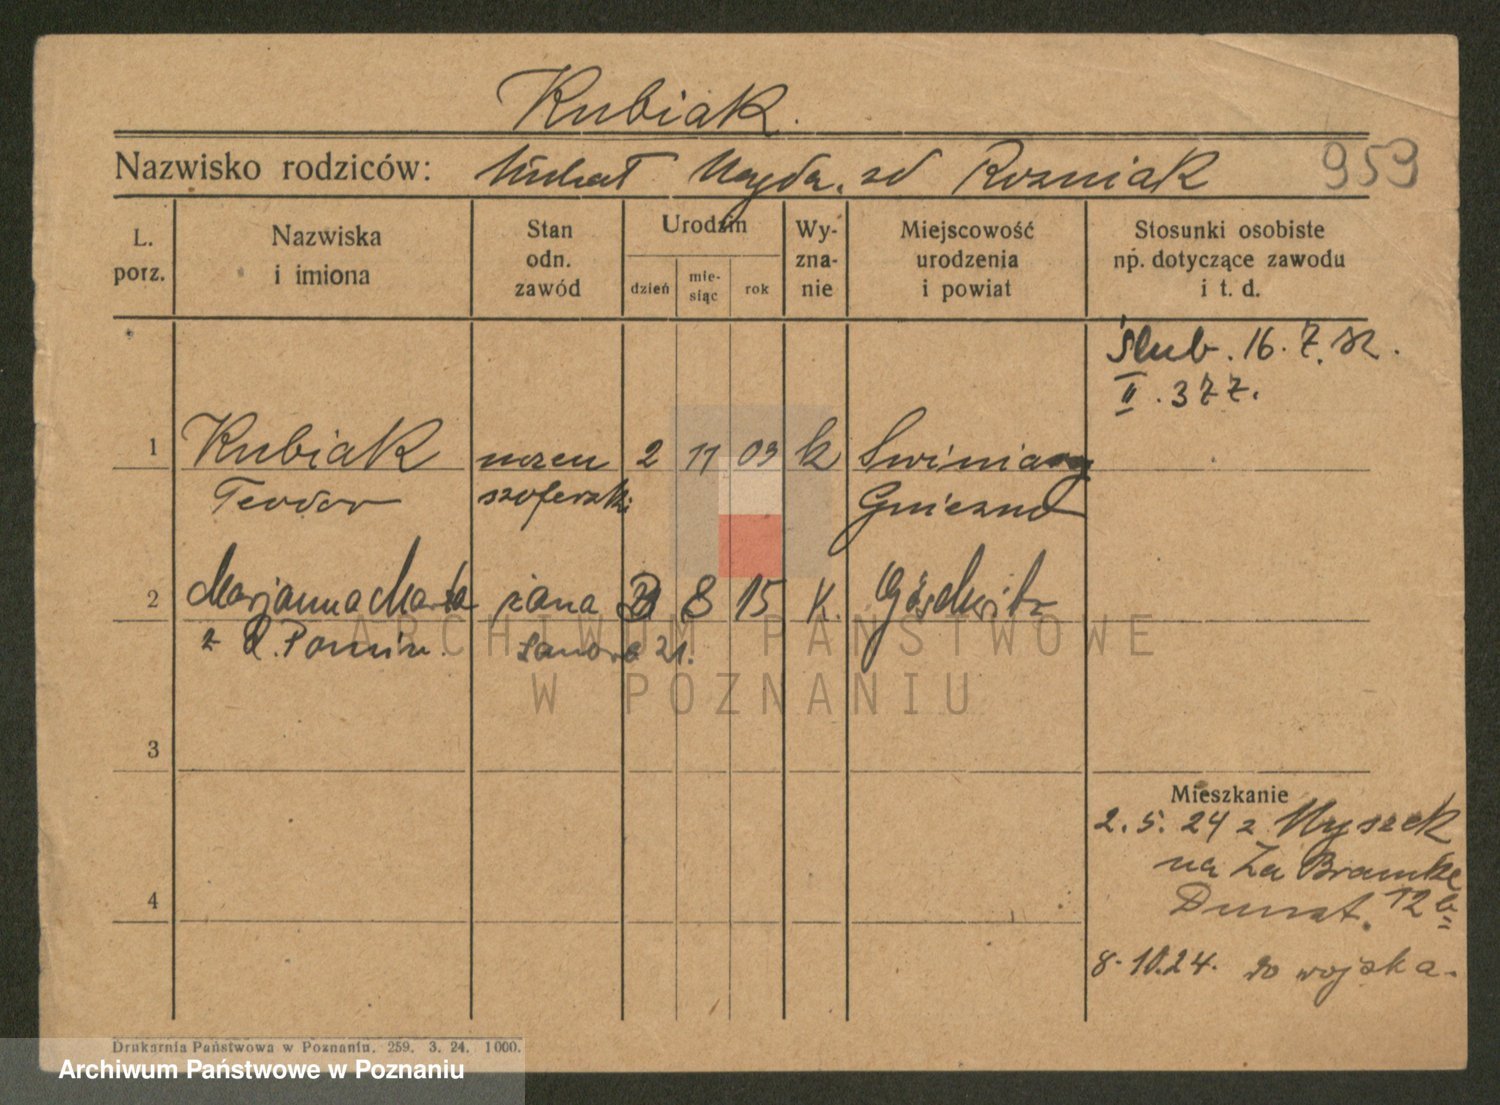 Kubiak.
Nazwisko rodziców: Michał Magda. zd Rozniak 959
L. porz.
Nazwiska i imiona
Stan odn. zawód
Urodzin
dzień
mie-siąc
rok
Wy-zna-nie
Miejscowość urodzenia i powiat
Stosunki osobiste np. dotyczące zawodu i t. d.
Ślub. 16. 7. 32.
II. 377.
1 Kubiak uczeń 2 11 03 k Swiniary
Teodor szoferski Gniezno
2 Marjanna Marta żona 21 8 15 K.
z d.
3
4
Mieszkanie
2. 5. 24 z Myszek
na Za Bramkę
12b
8. 10. 24. do wojska.
Drukarnia Państwowa w Poznaniu. 259. 3. 24. 1000.
ARCHIWUM PAŃSTWOWE
W POZNANIU
Archiwum Państwowe w Poznaniu